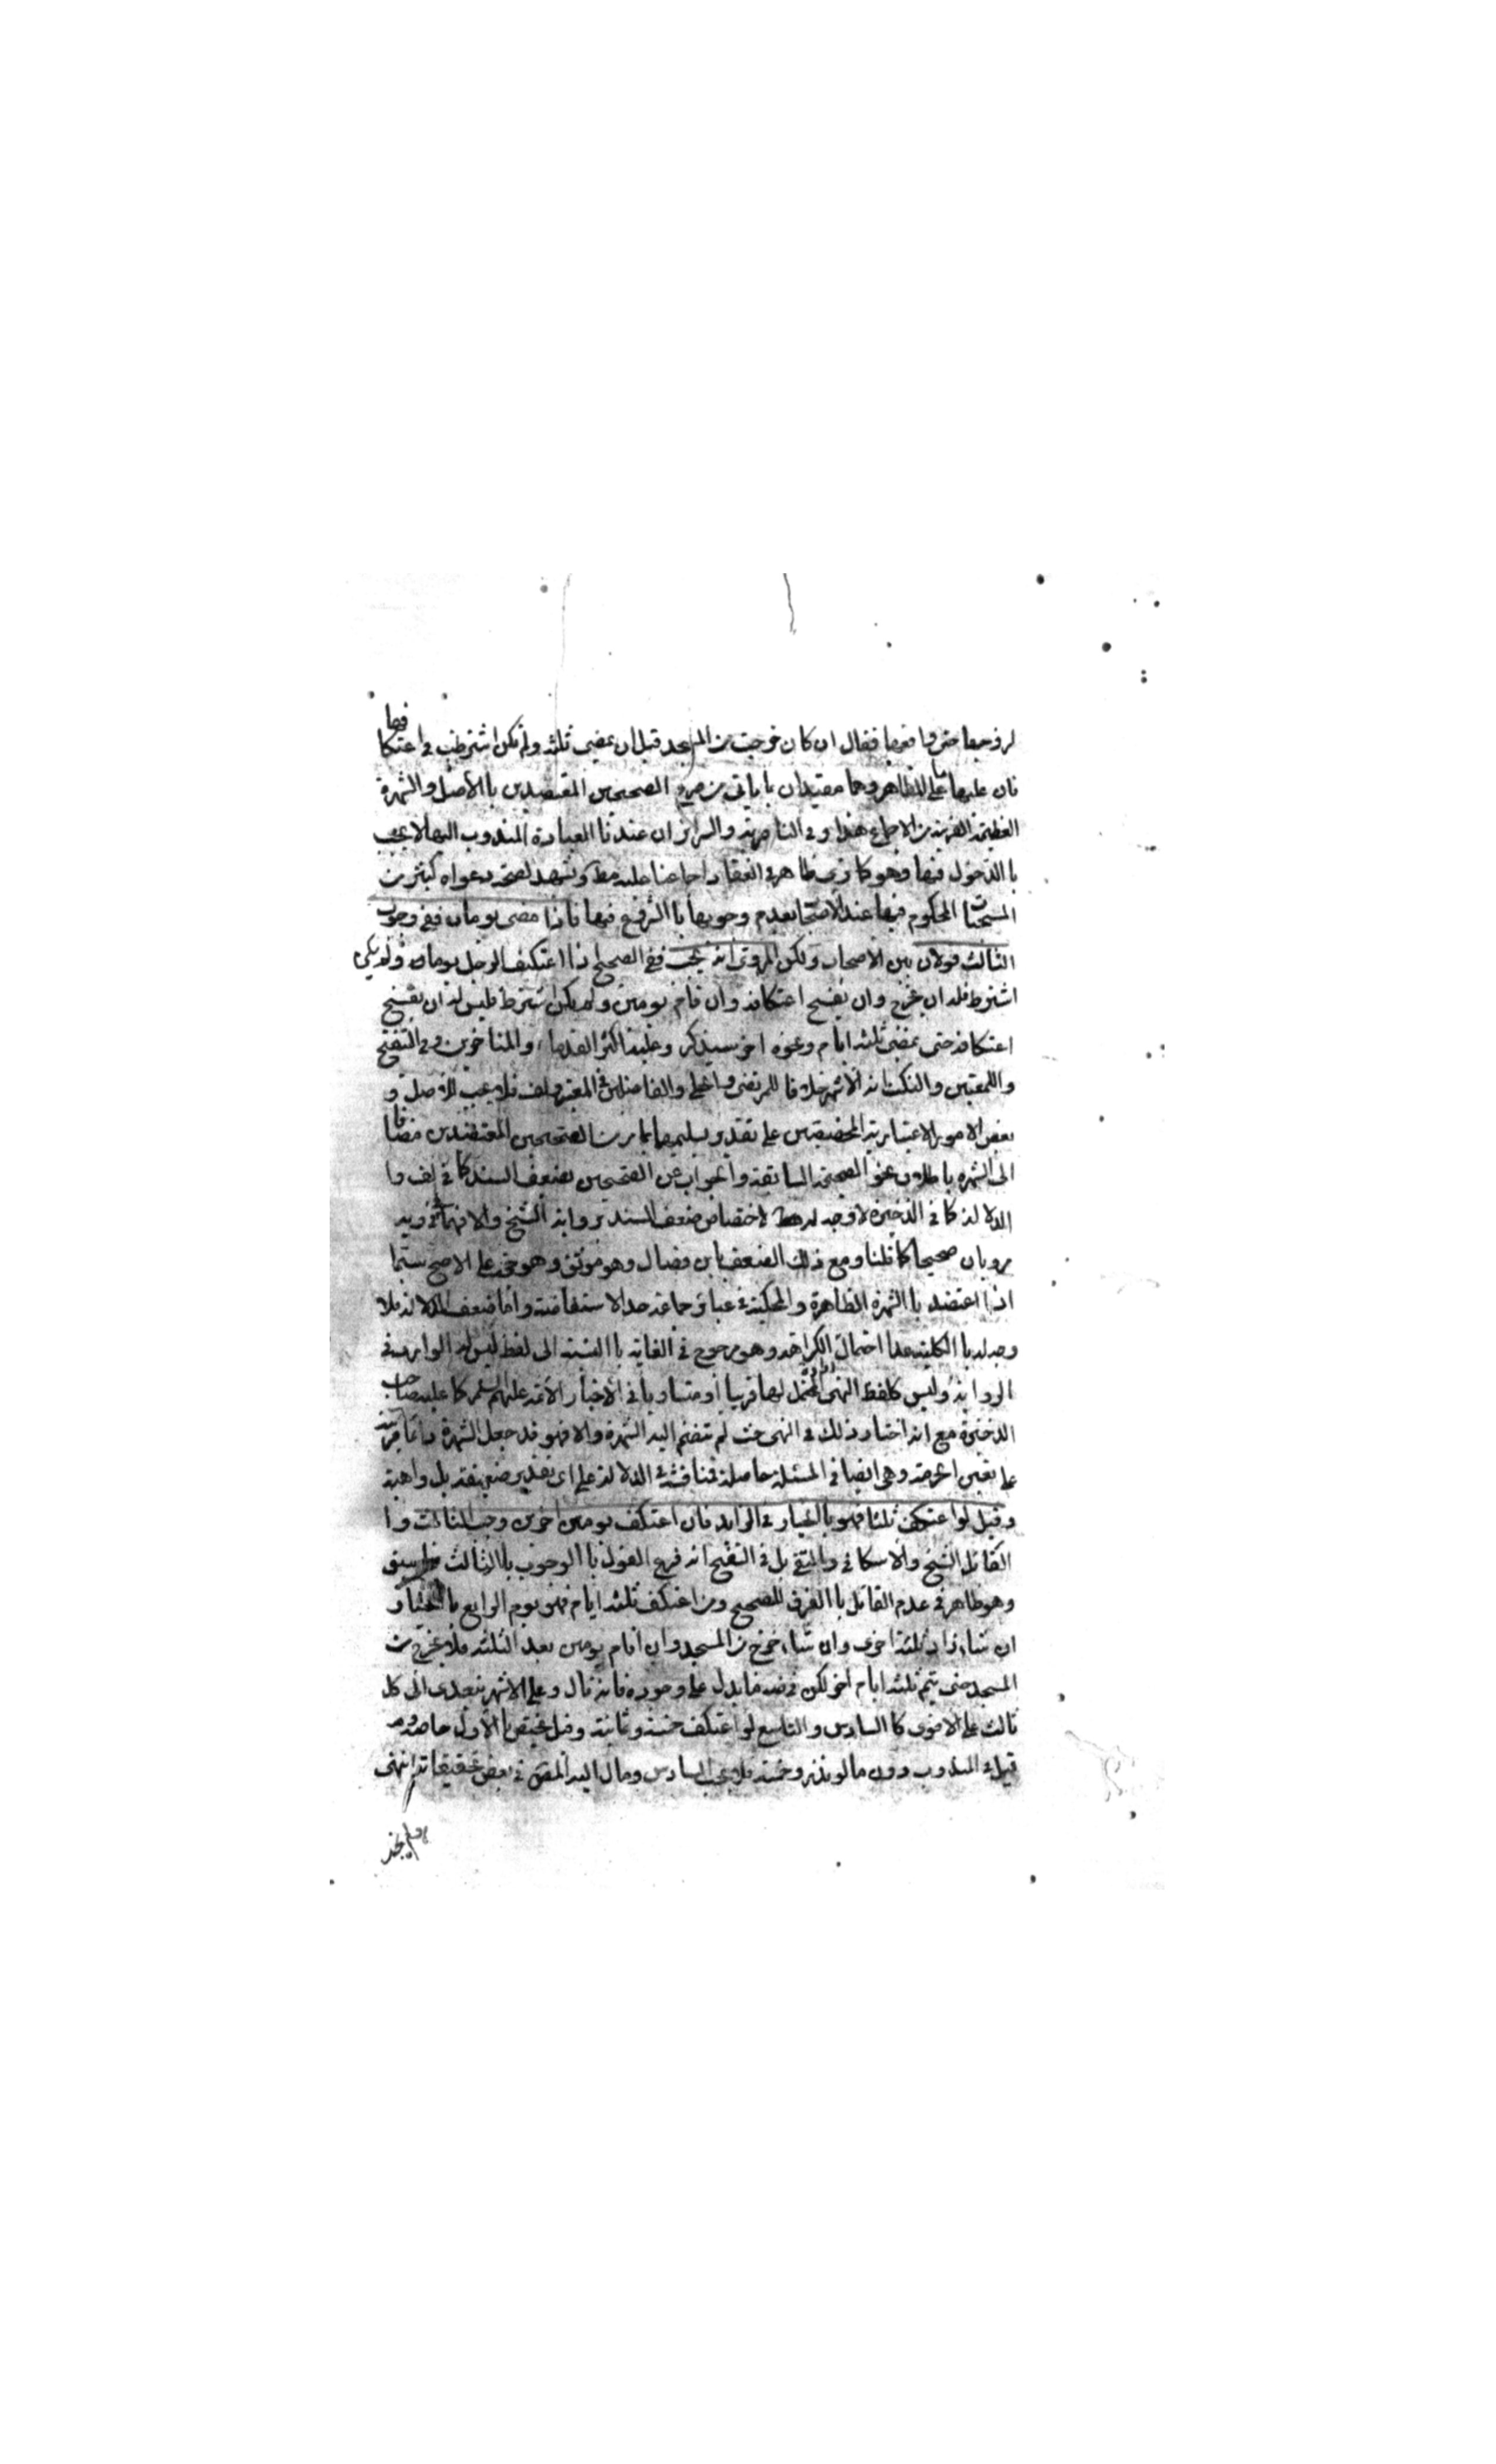 لزوجها حتى واقعها فقال ان كان خرجت من المسجد قبل ان يمضى ثلثة ولم تكن اشترطت في اعتكافها
فان عليها على المظاهر وهما مقيدان بما ياتي من صريح الصحيحين المعتضدين باالأصل والشهرة
العظيمة القريبة من الاجماع هذا وفي الناصرية والسرائر ان عندنا العبادة المندوب اليها لا يجب
باالدخول فيها وهو كما ترى ظاهر في انعقاد اجماعنا عليه مط ويشهد لصحة دعواه كثير من
المستحبات المحكوم فيها عند الأصحاب بعدم وجوبها باالشروع فيها فاذا مضى يومان ففي وجوب
الثالث قولان بين الأصحاب ولكن المروي انه يجب ففي الصحيح اذا اعتكف الرجل يوما ولم يكن
اشترط فله ان يخرج وان يفسخ اعتكافه وان قام يومين ولم يكن اشترط فليس له ان يفسخ
اعتكافه حتى يمضى ثلثة ايام ونحوه اخر سيذكر وعليه اكثر القدماء والمتاخرين وفي التنقيح
واللمعتين والنكت انه الأشهر خلافا للمرتضى والحلي والفاضلين في المعتبر ولف فلا يجب للأصل و
بعض الامور الاعتبارية المخصصين على تقدير تسليمها بما مر من الصحيحين المعتضدين مضافا
الى الشهرة باطلاق نحو الصحيحة السابقة والجواب عن الصحيحين بضعف السند كما في لف وا
الدلالة كما في الذخيرة لا وجه له لاختصاص ضعف السند برواية الشيخ والا فهما في
مرويان صحيحا كما قلنا ومع ذلك الضعف بابن فضال وهو موثق وهو حجة على الاصح سيما
اذا اعتضد باالشهرة الظاهرة والمحكية في عبائر جماعة حد الاستفاضة واما ضعف الدلالة فلا
وجه له باالكلية عدا احتمال الكراهة وهو مرجوح في الغاية باالنسبة الى لفظ ليس له الوارد في
الرواية وليس كلفظ النهى المحتمل لها قريبا او متساويا في الأخبار الأئمة عليهم السلم كما عليه صاحب
الذخيرة مع انه اختار ذلك في النهى حيث لم تنضم اليه الشهرة والا فهو قد جعل الشهرة دائما قرينة
على تعيين الحرمة وهي ايضا في المسئلة حاصلة فمناقشته في الدلالة على اى تقدير ضعيفة بل واهية
وقيل لو اعتكف ثلثا فهو باالخيار في الزايد فان اعتكف يومين اخرين وجب الثالث وا
القائل الشيخ والاسكافي والتقى بل في التنقيح انه فرع القول باالوجوب باالثالث
وهو ظاهر في عدم القائل باالفرق للصحيح ومن اعتكف ثلثة ايام فهو يوم الرابع باالخيار
ان شاء زاد ثلثة اخرى وان شاء خرج من المسجد وان اقام يومين بعد الثلثة فلا يخرج من
المسجد حتى يتم ثلثة ايام اخر لكن في ضه ما يدل على وجوده فانه قال وعلى الاشهر يتعدى الى كل
ثالث على الاقوى كا السادس والتاسع لو اعتكف خمسة وثمانية وقيل يختص باالأول خاصة و
قيل في المندوب دون ما لو نذر وخمسة فلا يجب السادس ومال اليه المصنف في بعض تحقيقاته انتهى